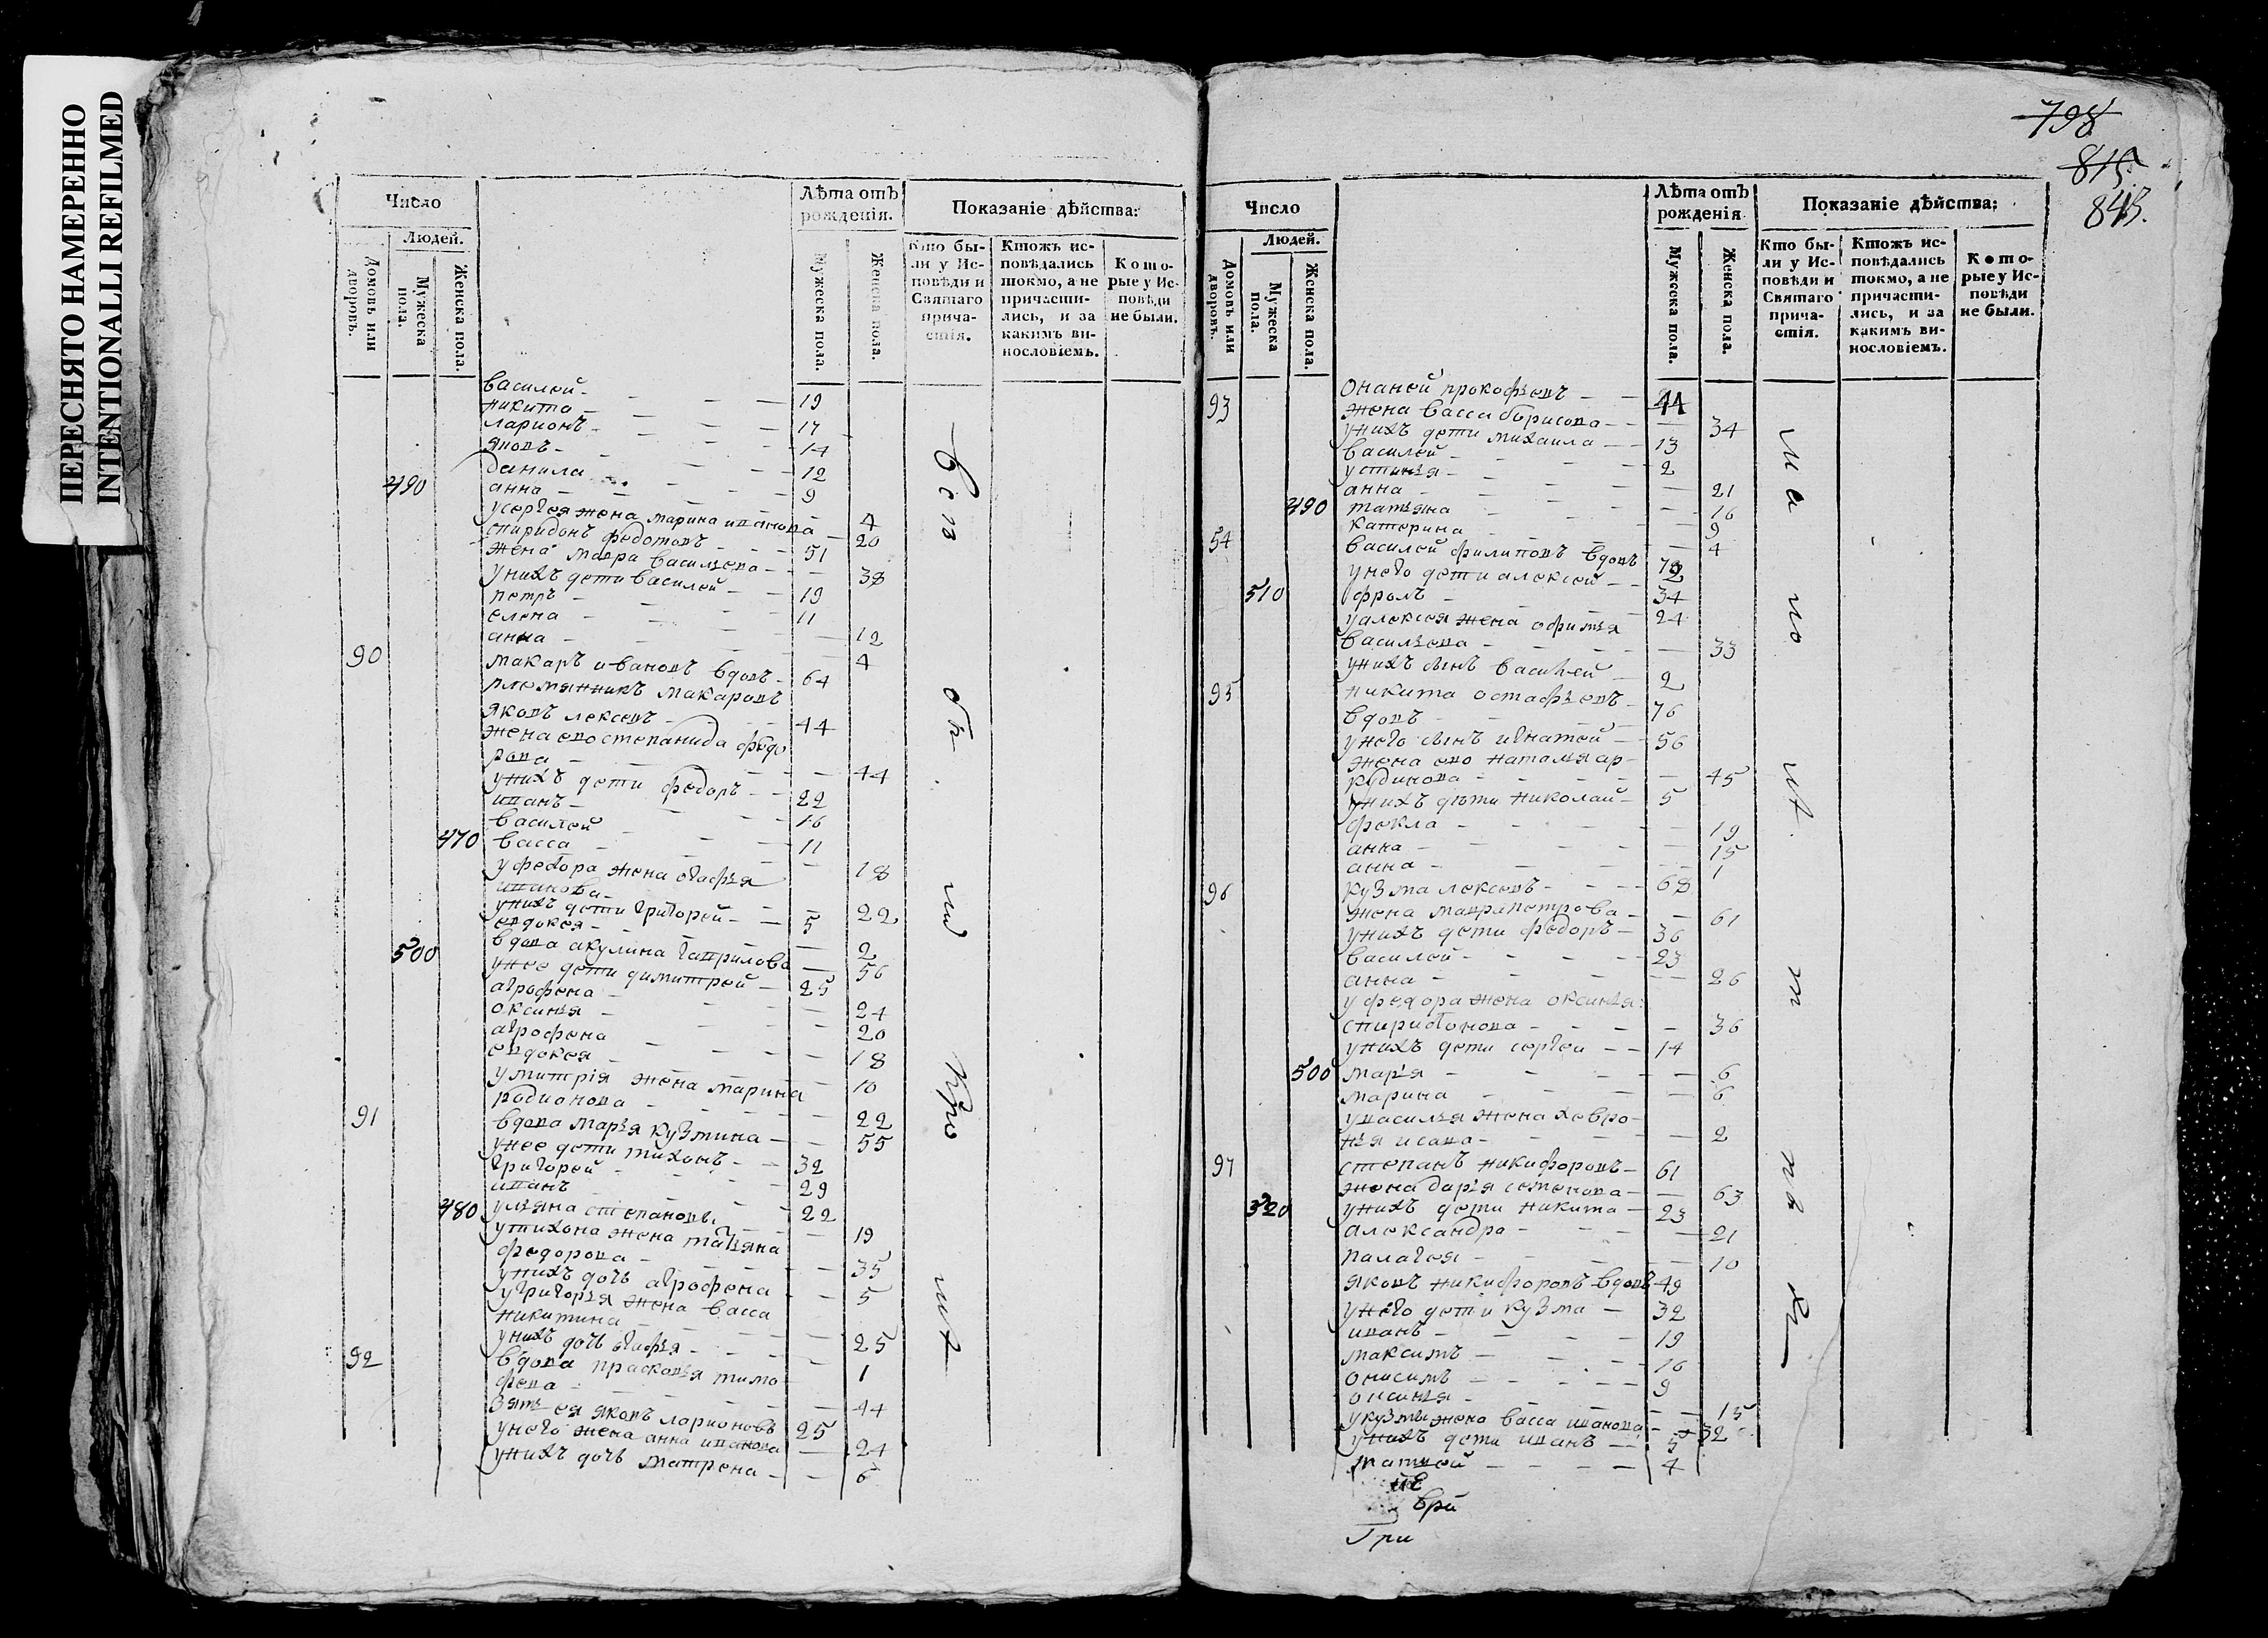 ПЕРЕСНЯТО НАМЕРЕННО
INTENTIONALLI REFILMED
Число
Людей.
Домовъ или дворовъ.
Мужеска пола.
Женска пола.
Лѣта отъ рожденія.
Мужеска пола.
Женска пола.
Показаніе дѣйства:
Кто были у Исповѣди и Святаго причастія.
Ктожъ исповѣдались токмо, а не причастились, и за какимъ винословіемъ.
Которые у Исповѣди не были.
василей 19
никита 17
ларионъ 14
яковъ 12
данила 9
490 анна 4
усергея жена марина иванова 20
спиридонъ федотовъ 51
жена мавра васильева 38
унихъ дети василей 19
петръ 11
елена 12
анна 4
90 макаръ ивановъ вдовъ 64
племянникъ макаровъ
яковъ лексевъ 44
жена ево степанида федо
рова 44
унихъ дети федоръ 22
иванъ 16
василей 11
470 васса 18
уфедора жена огафья
иванова 22
унихъ дети григорей 5
евдокея 2
500 вдова акулина гаврилова 56
унее дети димитрей 25
агрофена 24
оксинья 20
агрофена 18
евдокея 10
умитрія жена марина
родионова 22
91 вдова марья кузмина 55
унее дети тихонъ 32
григорей 29
иванъ 22
480 ульяна степанова 19
утихона жена татьяна
федорова 35
унихъ дочь агрофена 5
угригорья жена васса
никитина 25
унихъ дочь огафья 1
92 вдова прасковья тимо
фева 44
зять ея яковъ ларионовъ 25
унего жена анна иванова 24
унихъ дочь матрена 6
798
815
843.
Число
Людей.
Домовъ или дворовъ.
Мужеска пола.
Женска пола.
Лѣта отъ рожденія
Мужеска пола.
Женска пола.
Показаніе дѣйства:
Кто были у Исповѣди и Святаго причастія.
Ктожъ исповѣдались токмо, а не причастились, и за какимъ винословіемъ.
Которые у Исповѣди не были.
93 онаней прокофьевъ 44
жена васса борисова 34
унихъ дети михаила 13
василей 2
устинья 21
анна 16
490 татьяна 9
катерина 4
54 василей филиповъ вдовъ 72
унего дети алексей 34
510 фролъ 24
уалексея жена офимья
васильева 33
унихъ сынъ василей 2
95 никита остафьевъ
вдовъ 76
унего сынъ игнатей 56
жена ево наталья ар-
кудинова 45
унихъ дѣти николай 5
фекла 19
анна 15
анна 1
96 кузма лексевъ 68
жена мавра петрова 61
унихъ дети федоръ 36
василей 23
анна 26
уфедора жена оксинья
спиридонова 36
унихъ дети сергеи 14
500 марья 6
марина 6
увасилья жена хевро-
нья исава 2
97 степанъ никифоровъ 61
жена дарья семенова 63
320 унихъ дети никита 23
александра 21
палагея 10
яковъ никифоровъ вдовъ 49
унего дети кузма 32
иванъ 19
максимъ 16
онисимъ 9
оксинья 15
укузмы жена васса иванова 32
унихъ дети иванъ 5
матвей 4
ври
Гри